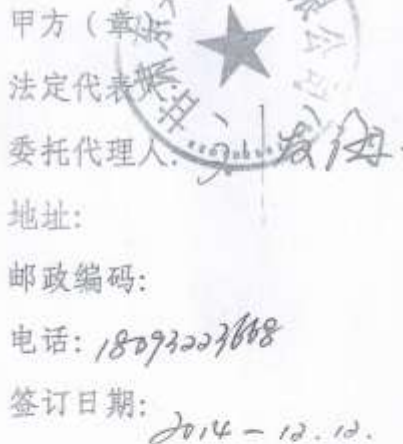 甲方（章
法定代表
委托代理人:
地址:
邮政编码:
电话: 18093223668
签订日期: 2014-12.12.